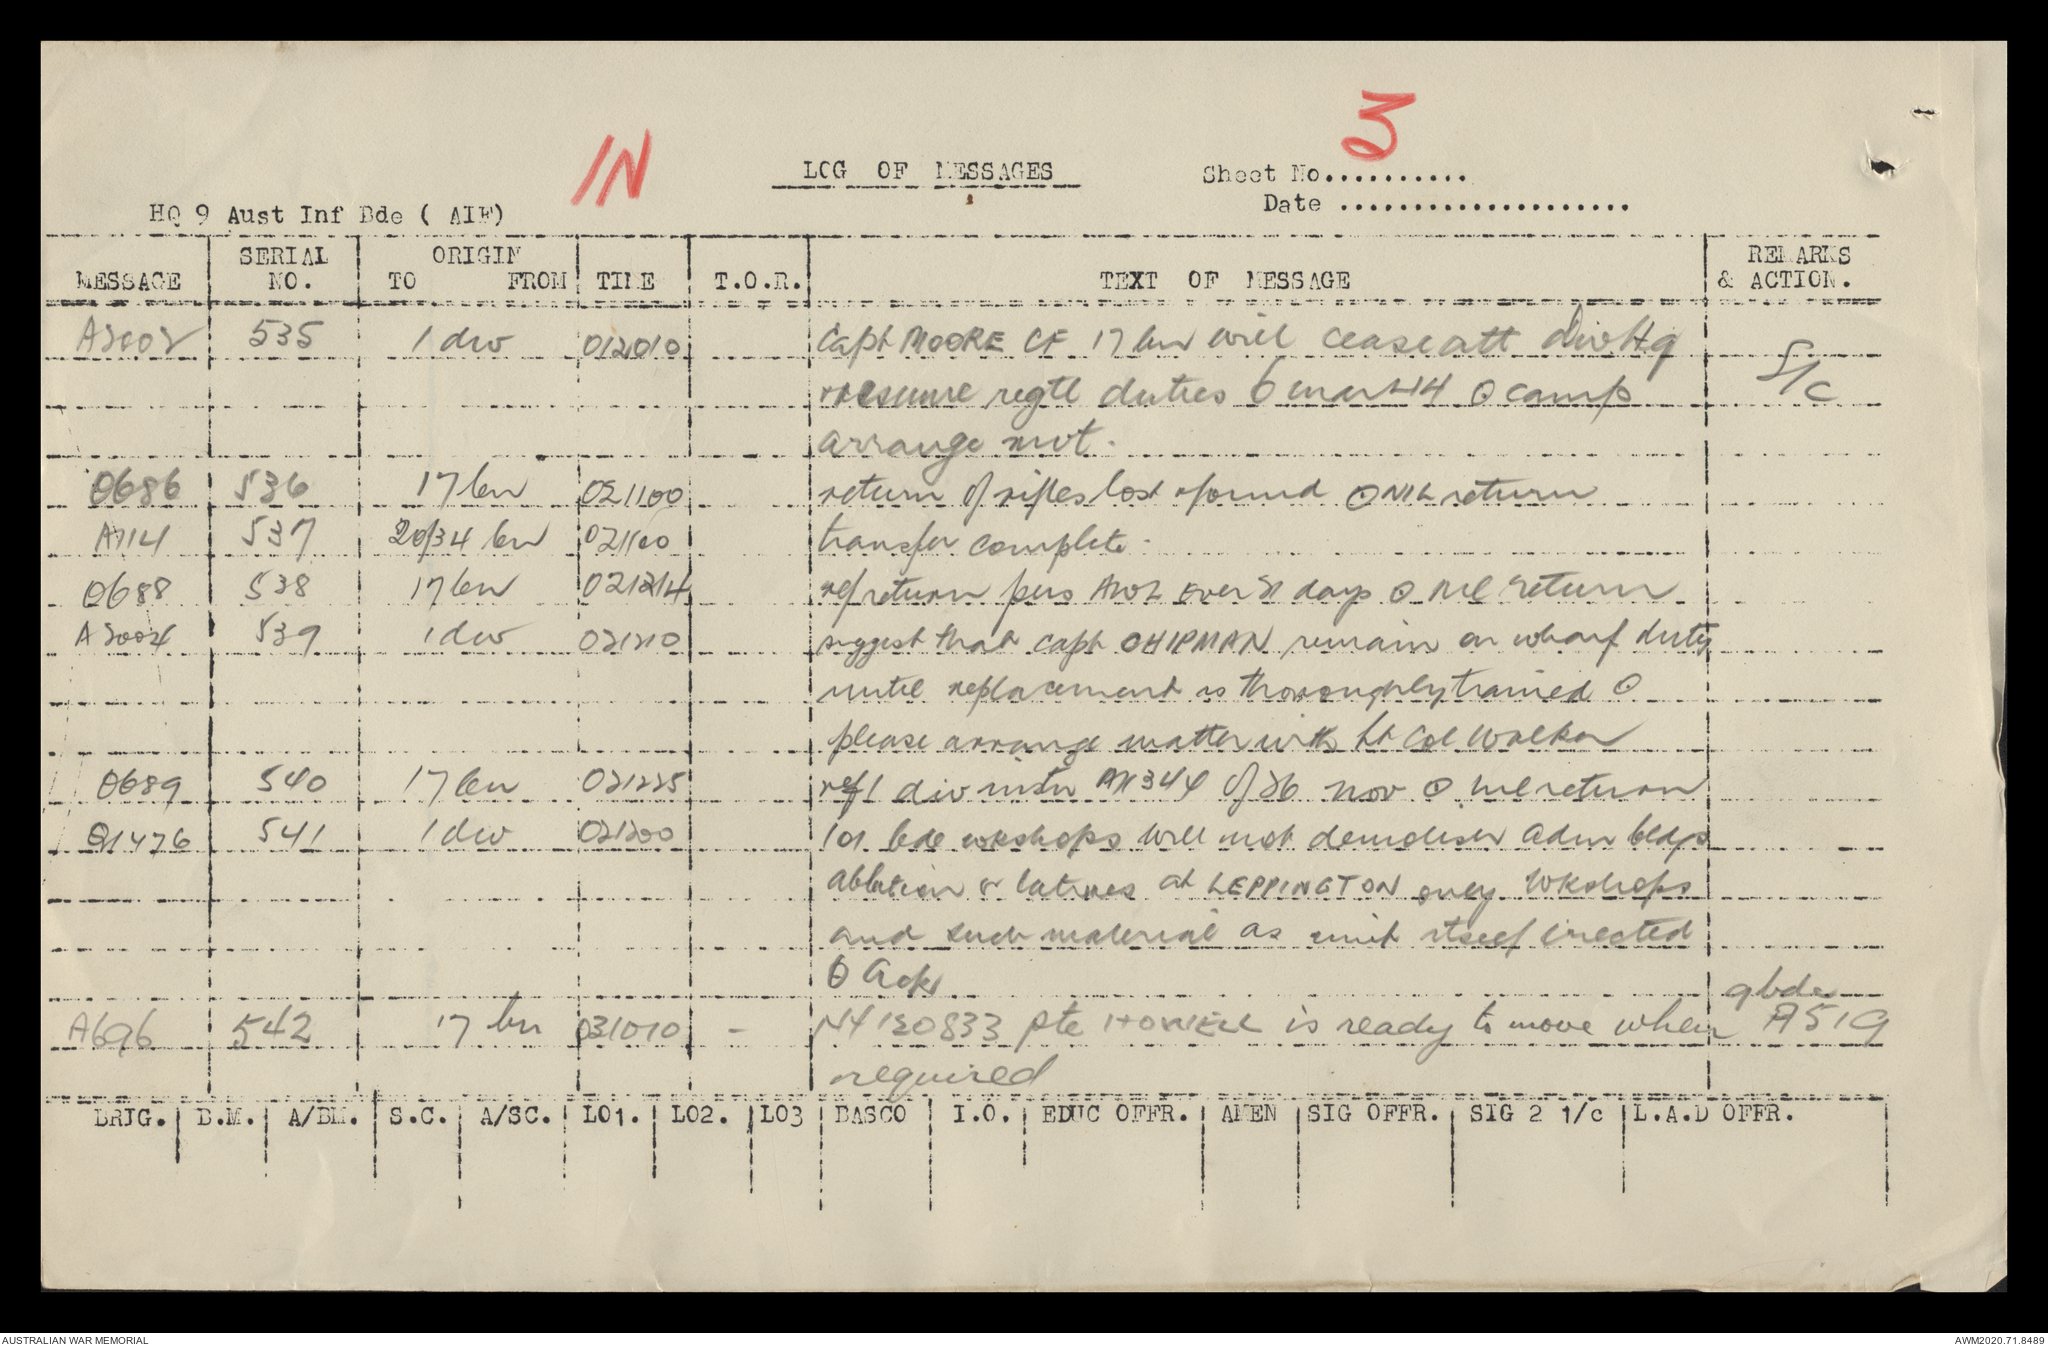 IN
3
LOG OF MESSAGES
Sheet No..........
Date .....................
HQ 9 Aust Inf Bde ( AIF)
MESSAGE SERIAL NO. ORIGIN TO FROM TIME T.O.R. TEXT OF MESSAGE REMARKS & ACTION.
A2002 535 1 div 012010 Capt MOORE CF 17 bn will cease att div Hq
resume regtl duties 6 mar 44 ⊙ camp S/C
arrange mvt.
O686 536 17 bn 021100 return of rifles lost & found ⊙ NIL return
A114 537 20/34 bn 021100 transfer complete.
O688 538 17 bn 021214 ref return pers AWL over 21 days ⊙ nil return
A2004 539 1 div 021210 suggest that capt CHIPMAN remain on wharf duty
until replacement is thoroughly trained ⊙
please arrange matter with Lt Col Walker
O689 540 17 bn 021225 ref 1 div instn of 26 nov ⊙ nil return
Q1476 541 1 div 021200 101 bde wkshops will not demolish adm bldgs
ablution & latrines at LEPPINGTON only wkshops
and such material as unit itself erected
⊙ Ack
9 bde
A696 542 17 bn 031010 - NX130833 pte HOWELL is ready to move when A519
required
BRIG. B.M. A/BM. S.C. A/SC. LO1. LO2. LO3 BASCO I.O. EDUC OFFR. AMEN SIG OFFR. SIG 2 1/c L.A.D OFFR.
AUSTRALIAN WAR MEMORIAL
AWM2020.71.8489